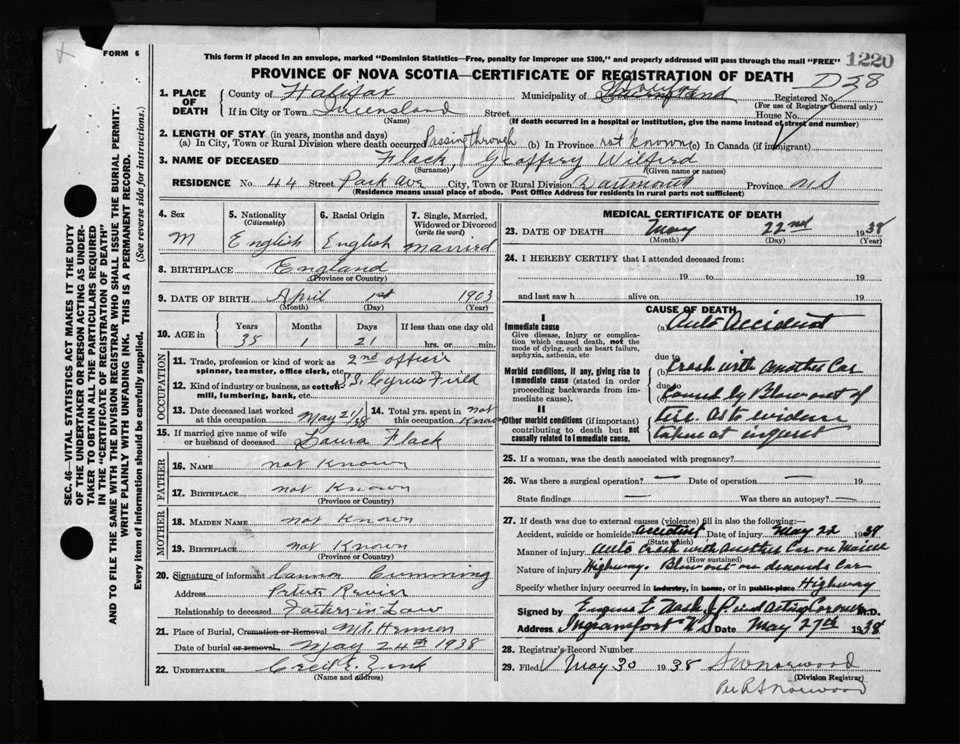 FORM 6
This form if placed in an envelope, marked "Dominion Statistics—Free, penalty for improper use $300," and properly addressed will pass through the mail "FREE"
1220
PROVINCE OF NOVA SCOTIA—CERTIFICATE OF REGISTRATION OF DEATH
D 38
1. PLACE OF DEATH
County of Halifax Municipality of Registered No.
(For use of Registrar General only)
If in City or Town Queensland Street House No.
(Name) (If death occurred in a hospital or institution, give the name instead of street and number)
2. LENGTH OF STAY (in years, months and days)
(a) In City, Town or Rural Division where death occurred Passing through (b) In Province not known (c) In Canada (if immigrant)
3. NAME OF DECEASED Flack, Geoffrey Wilfred
(Surname) (Given name or names)
RESIDENCE No. 44 Street Park Ave City, Town or Rural Division Dartmouth Province N.S
(Residence means usual place of abode. Post Office Address for residents in rural parts not sufficient)
SEC. 46—VITAL STATISTICS ACT MAKES IT THE DUTY
OF THE UNDERTAKER OR PERSON ACTING AS UNDER-
TAKER TO OBTAIN ALL THE PARTICULARS REQUIRED
IN THE "CERTIFICATE OF REGISTRATION OF DEATH"
AND TO FILE THE SAME WITH THE DIVISION REGISTRAR WHO SHALL ISSUE THE BURIAL PERMIT.
WRITE PLAINLY WITH UNFADING INK. THIS IS A PERMANENT RECORD.
Every item of information should be carefully supplied. (See reverse side for instructions.)
4. Sex M
5. Nationality (Citizenship) English
6. Racial Origin English
7. Single, Married, Widowed or Divorced (write the word) Married
8. BIRTHPLACE England
(Province or Country)
9. DATE OF BIRTH April 1st 1903
(Month) (Day) (Year)
10. AGE in Years 35 Months 1 Days 21 If less than one day old hrs. or min.
OCCUPATION
11. Trade, profession or kind of work as spinner, teamster, office clerk, etc. 2nd officer
12. Kind of industry or business, as cotton mill, lumbering, bank, etc. S.S. Cyrus Field
13. Date deceased last worked at this occupation May 21/38
14. Total yrs. spent in this occupation not Known
15. If married give name of wife or husband of deceased Laura Flack
FATHER
16. NAME not Known
17. BIRTHPLACE not Known
(Province or Country)
MOTHER
18. MAIDEN NAME not Known
19. BIRTHPLACE not Known
(Province or Country)
20. Signature of informant Cumming
Address
Relationship to deceased Father in Law
21. Place of Burial, Cremation or Removal Mt. Hermon
Date of burial or removal, May 24th 1938
22. UNDERTAKER Cecil E. Zink
(Name and address)
MEDICAL CERTIFICATE OF DEATH
23. DATE OF DEATH May 22nd 1938
(Month) (Day) (Year)
24. I HEREBY CERTIFY that I attended deceased from:
19 to 19
and last saw h alive on 19
CAUSE OF DEATH
I
Immediate cause
Give disease, injury or complication which caused death, not the mode of dying, such as heart failure, asphyxia, asthenia, etc
(a) Auto Accident
Morbid conditions, if any, giving rise to immediate cause (stated in order proceeding backwards from immediate).
due to Crash with another Car
due to Caused by Blow out of
II
Other morbid conditions (if important) contributing to death but not causally related to immediate cause.
tire as to evidence
taken at inquest
25. If a woman, was the death associated with pregnancy?
26. Was there a surgical operation? — Date of operation — 19
State findings — Was there an autopsy? —
27. If death was due to external causes (violence) fill in also the following:
Accident, suicide or homicide accident Date of injury May 22 1938
(State which)
Manner of injury Auto Crash with Another Car on Main
(How sustained)
Nature of injury Highway. Blow out on Car
Specify whether injury occurred in industry, in home, or in public place Highway
Signed by Eugene E Nash acting Coroner M.D.
Address Ingramport N S Date May 27th 1938
28. Registrar's Record Number
29. Filed May 30 1938 Norwood
(Division Registrar)
Per Norwood